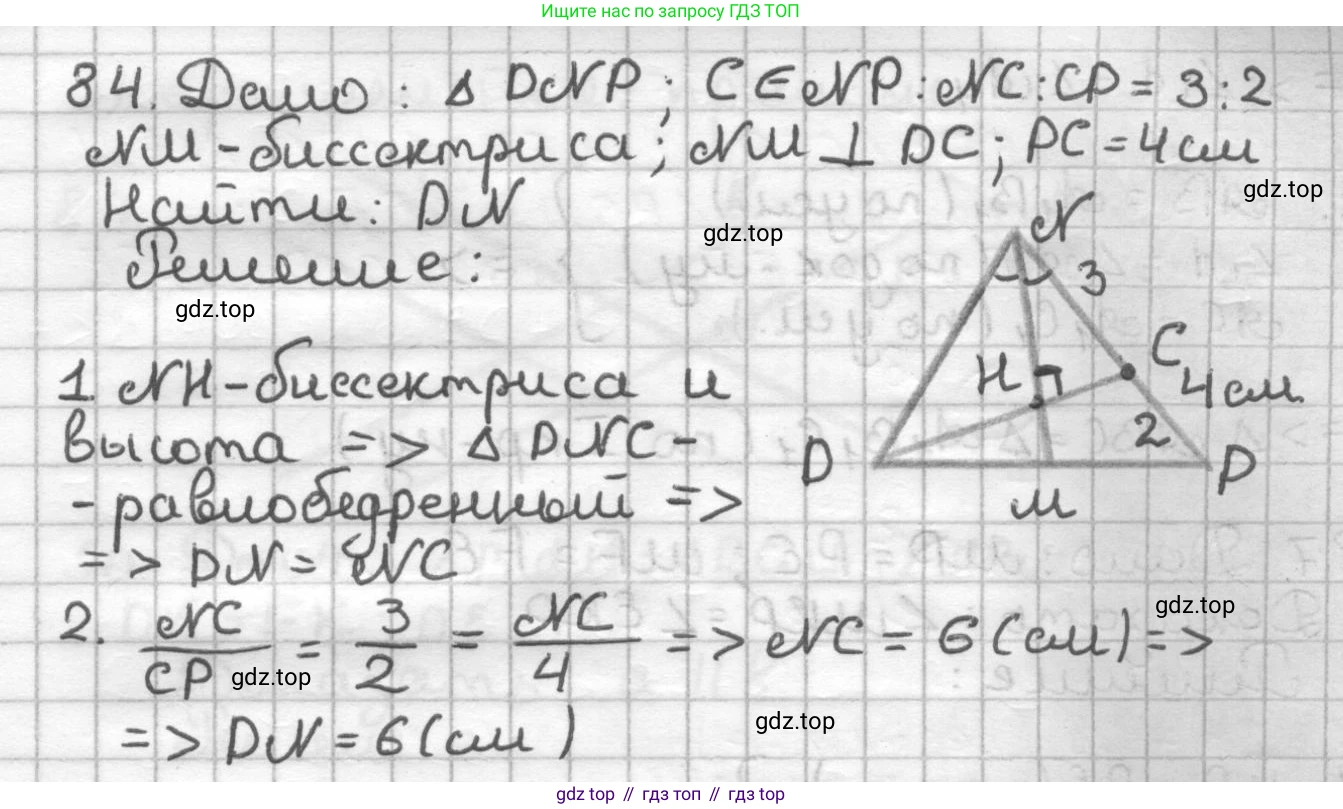 Ищите нас по запросу ГДЗ ТОП
84. Дано: Δ DNP; C ∈ NP: NC:CP = 3:2
NM - биссектриса; NM ⊥ DC; PC = 4 см
gdz.top
Найти: DN
gdz.top
Решение:
gdz.top
N
3
C
H
4 см.
2
D
P
M
1. NH - биссектриса и
высота => Δ DNC -
- равнобедренный =>
=> DN = NC
gdz.top
2. NC/CP = 3/2 = NC/4 => NC = 6 (см) =>
gdz.top
=> DN = 6 (см)
gdz.top
gdz top // гдз топ // гдз top